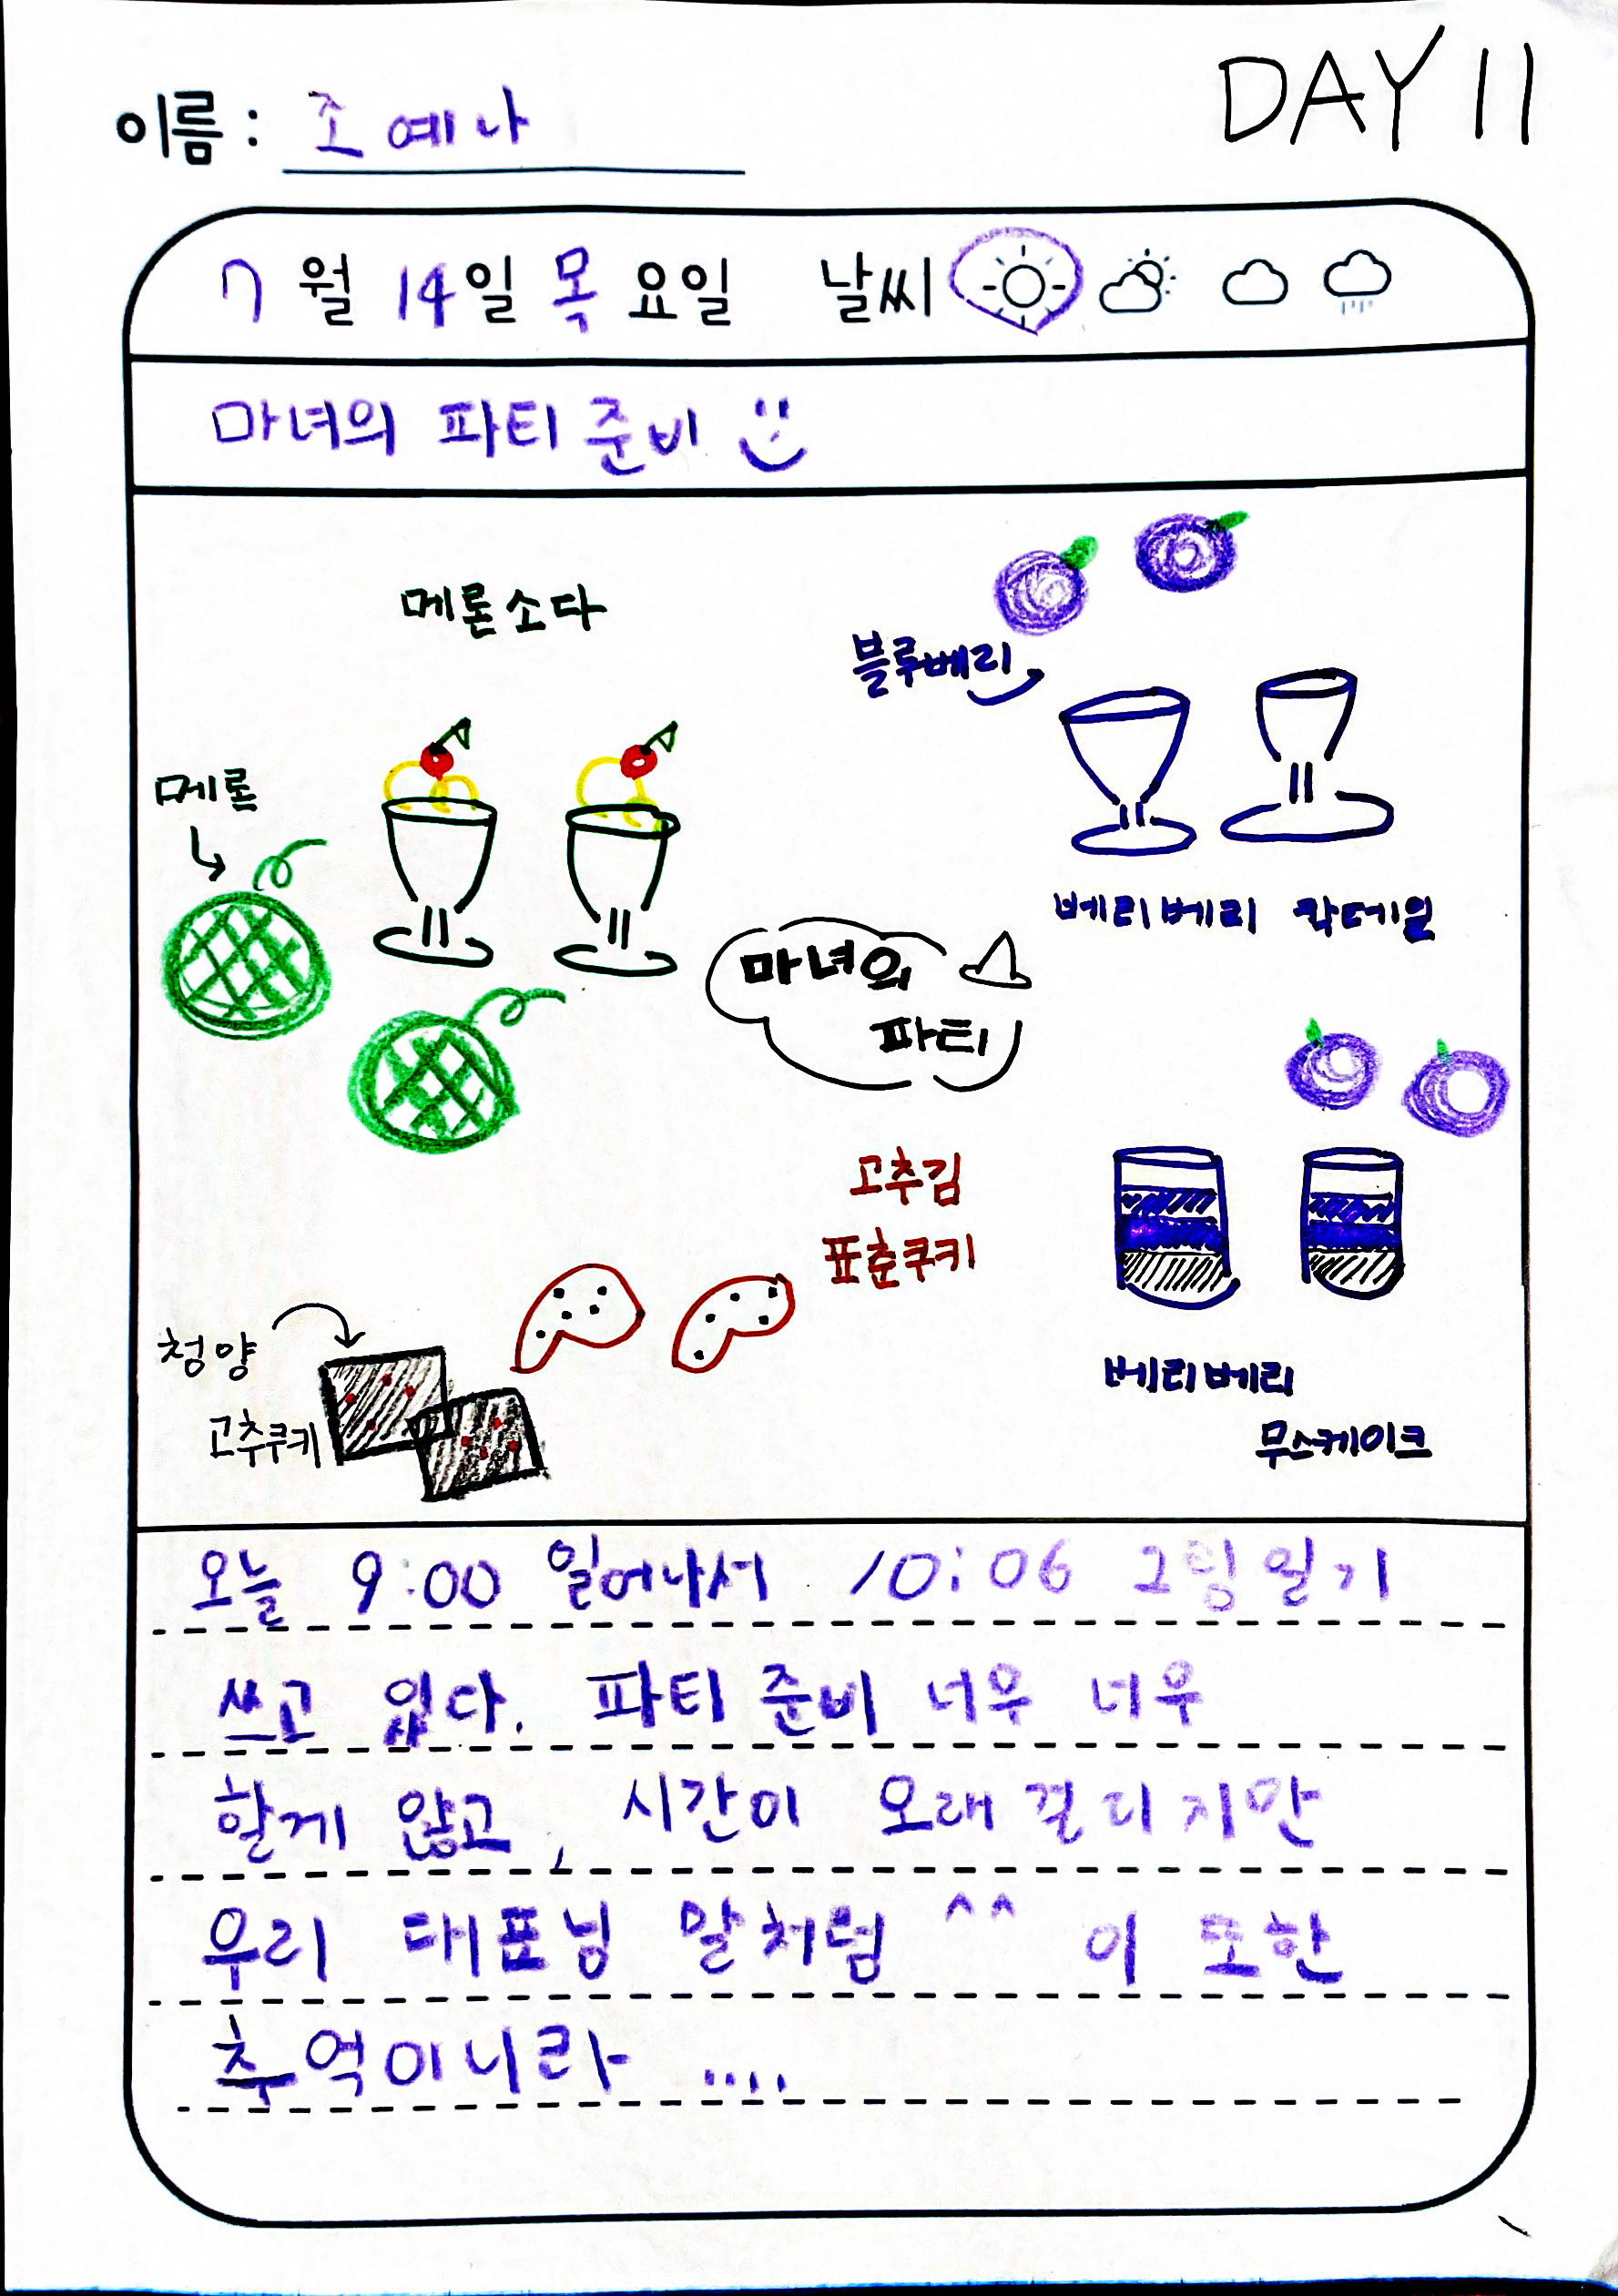 DAY 11
이름 : 조예나
7월 14일 목요일 날씨
마녀의 파티 준비
메론소다
블루베리
메론
베리베리 칵테일
마녀의
파티
고추김
표춘쿠키
청양
고추쿠키
베리베리
무스케이크
오늘 9:00 일어나서 10:06 그림일기
쓰고 있다. 파티 준비 너무 너무
할게 않고, 시간이 오래 걸리지만
우리 대표님 말처럼 ^^ 이 또한
추억이니라 ....